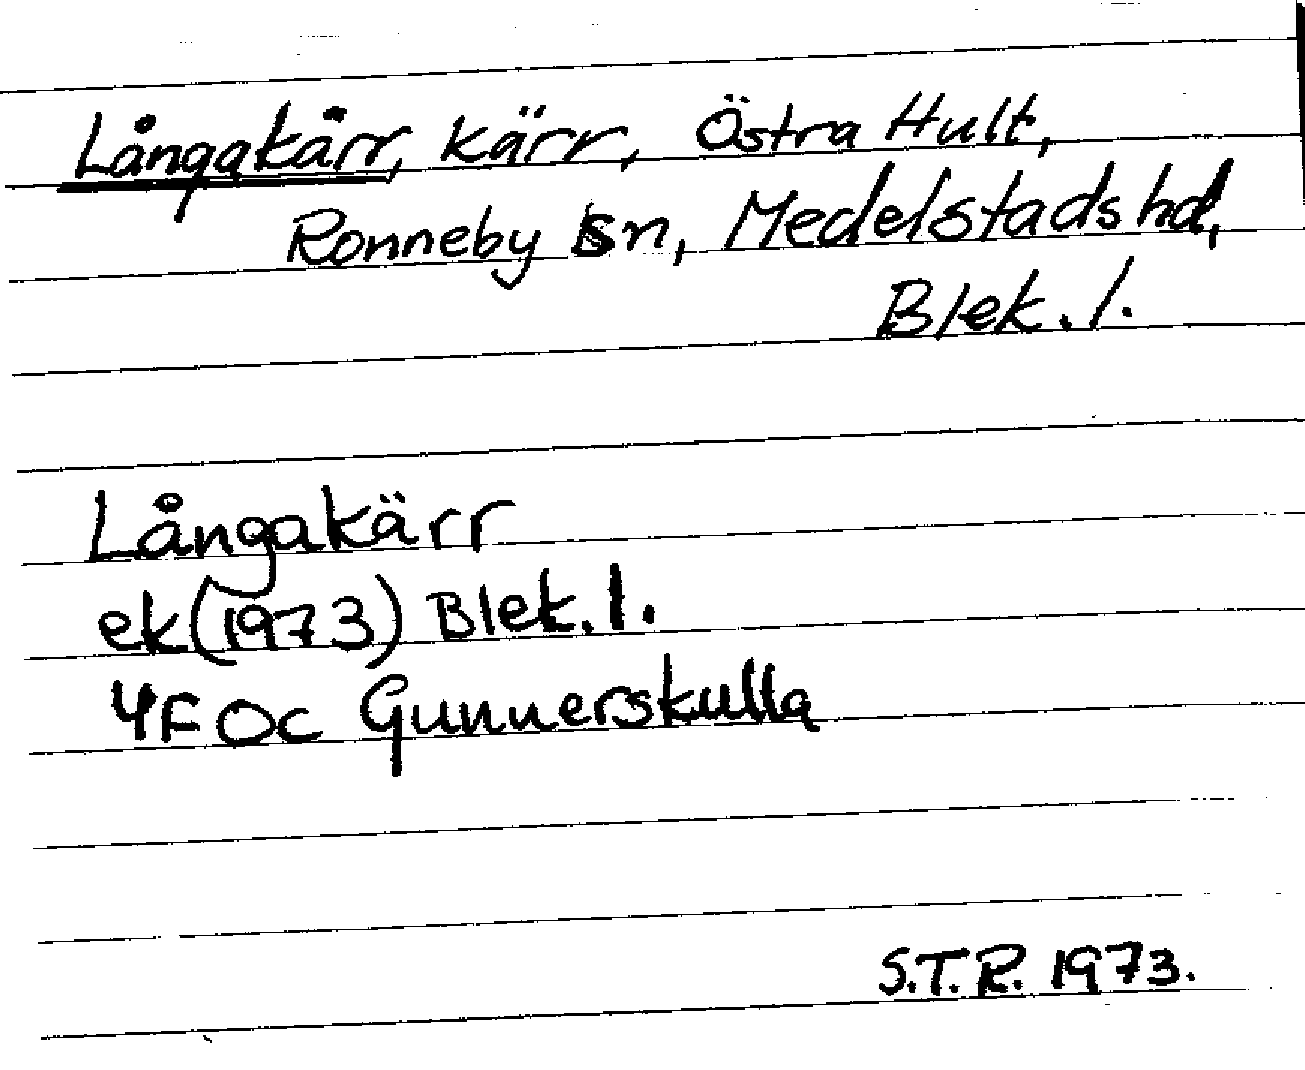 Långakärr, kärr, Östra Hult,
Ronneby sn, Medelstads hd,
Blek. l.
Långakärr
ek (1973) Blek. l.
4F 0c Gunnerskulla
S.T.R. 1973.